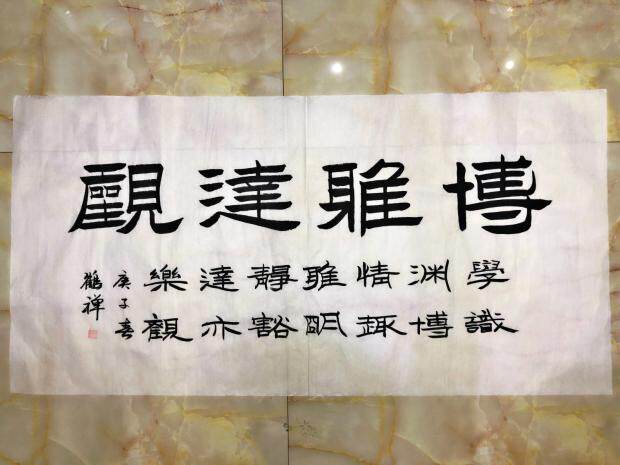 博雅達觀
學識
渊博
情趣
雅明
靜豁
達亦
樂觀
庚子春
鶴禅